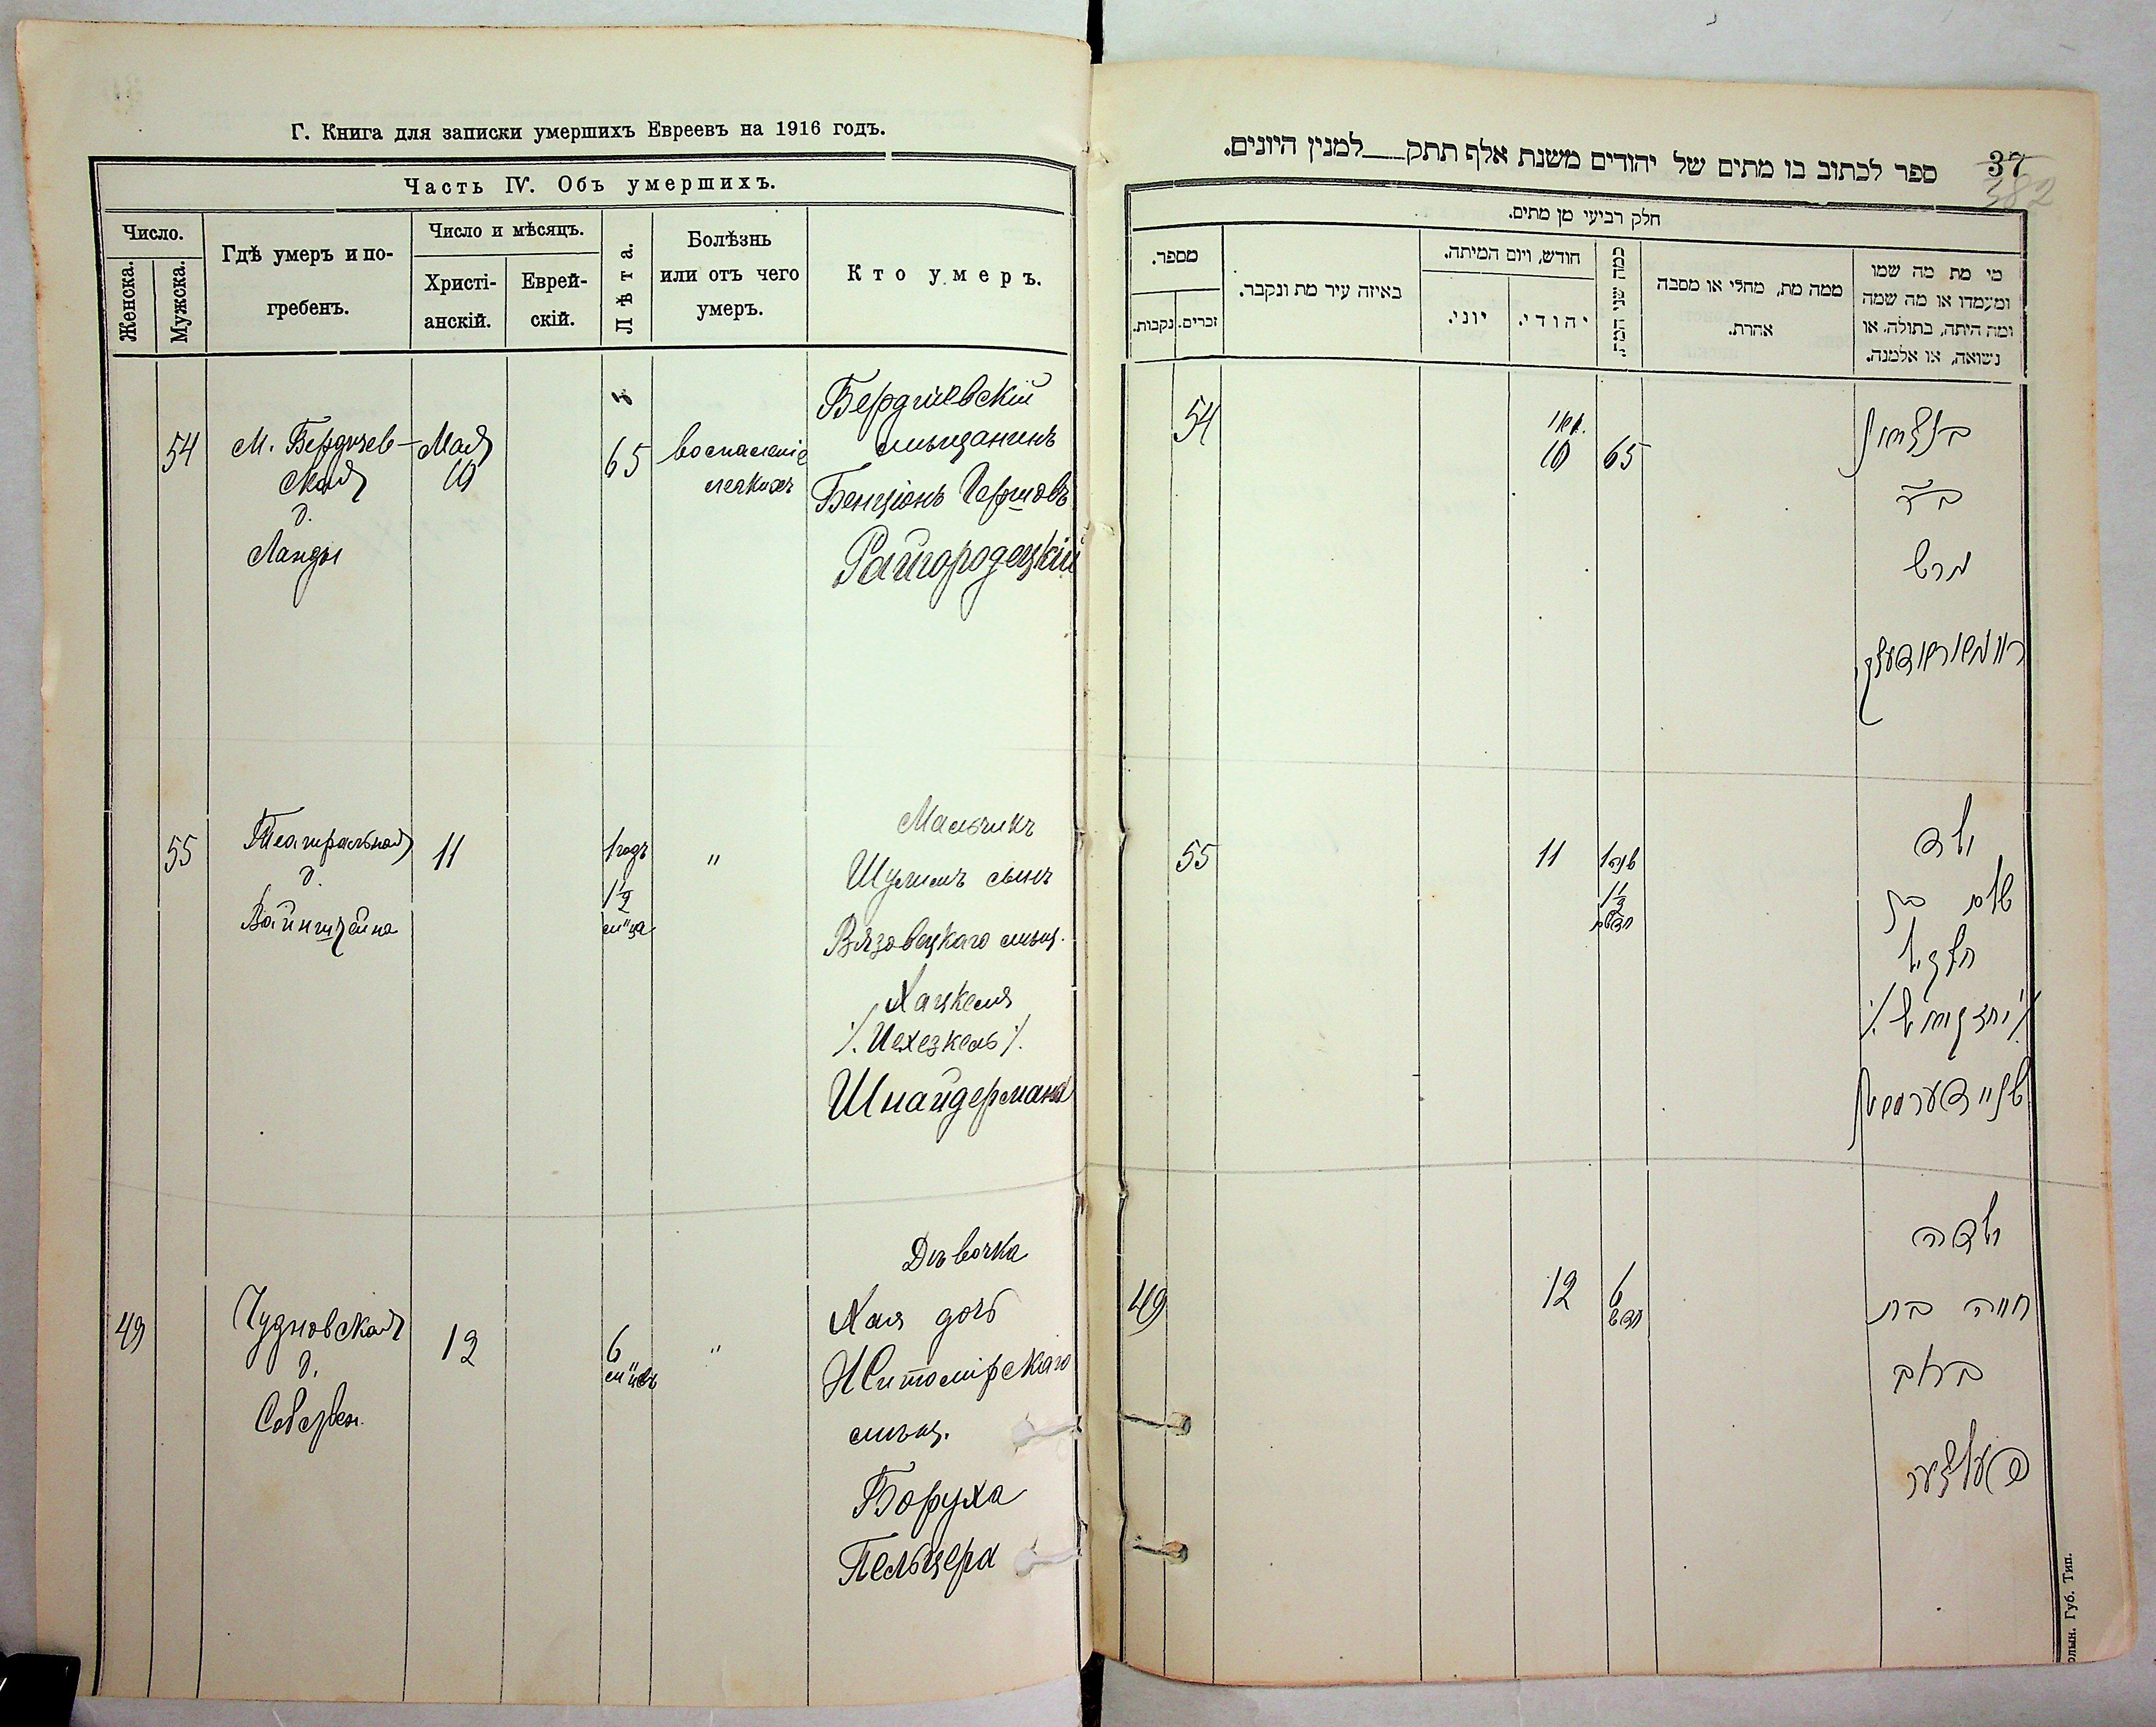 Г. Книга для записки умершихъ Евреевъ на 1916 годъ.
Часть IV. Объ умершихъ.
Число.
Женска.
Мужска.
Гдѣ умеръ и по-
гребенъ.
Число и мѣсяцъ.
Христі-
анскій.
Еврей-
скій.
Лѣта.
Болѣзнь
или отъ чего
умеръ.
Кто умеръ.
54
М. Бердичев-
ская
д.
Ланды
Мая
10
65
воспаленіе
легкихъ
Бердичевскій
мѣщанинъ
Бенціонъ Гершовъ
Райгородецкій
55
Театральная
д.
Вайнштейна
11
1 годъ
1½
м-ца
"
Мальчикъ
Шулимъ сынъ
Вязовецкаго мѣщ.
Хацкеля
/. Иехезкель /.
Шнайдермана
49
Чудновская
д.
12
6
м-цевъ
"
Дѣвочка
Хая дочь
Житомірскаго
мѣщ.
Боруха
Пельцера
37
382
ספר לכתוב בו מתים של יהודים משנת אלף תתק___למנין היונים.
חלק רביעי מן מתים.
מספר.
נקבות.
זכרים.
באיזה עיר מת ונקבר.
חודש, ויום המיתה.
יוני.
יהודי.
כמה שני המת
ממה מת, מחלי או מסבה
אחרת.
מי מת מה שמו
ומעמדו או מה שמה
ומה היתה, בתולה או
נשואה, או אלמנה.
54
10
65
בנציון
ב״ר
הרש
55
11
1 שנה
1½
חדשים
ילד
שלום בן
חצקיל
שניידערמאן
49
12
6
חדש
ילדה
חייה בת
ברוך
פעלצער
олын. Губ. Тип.